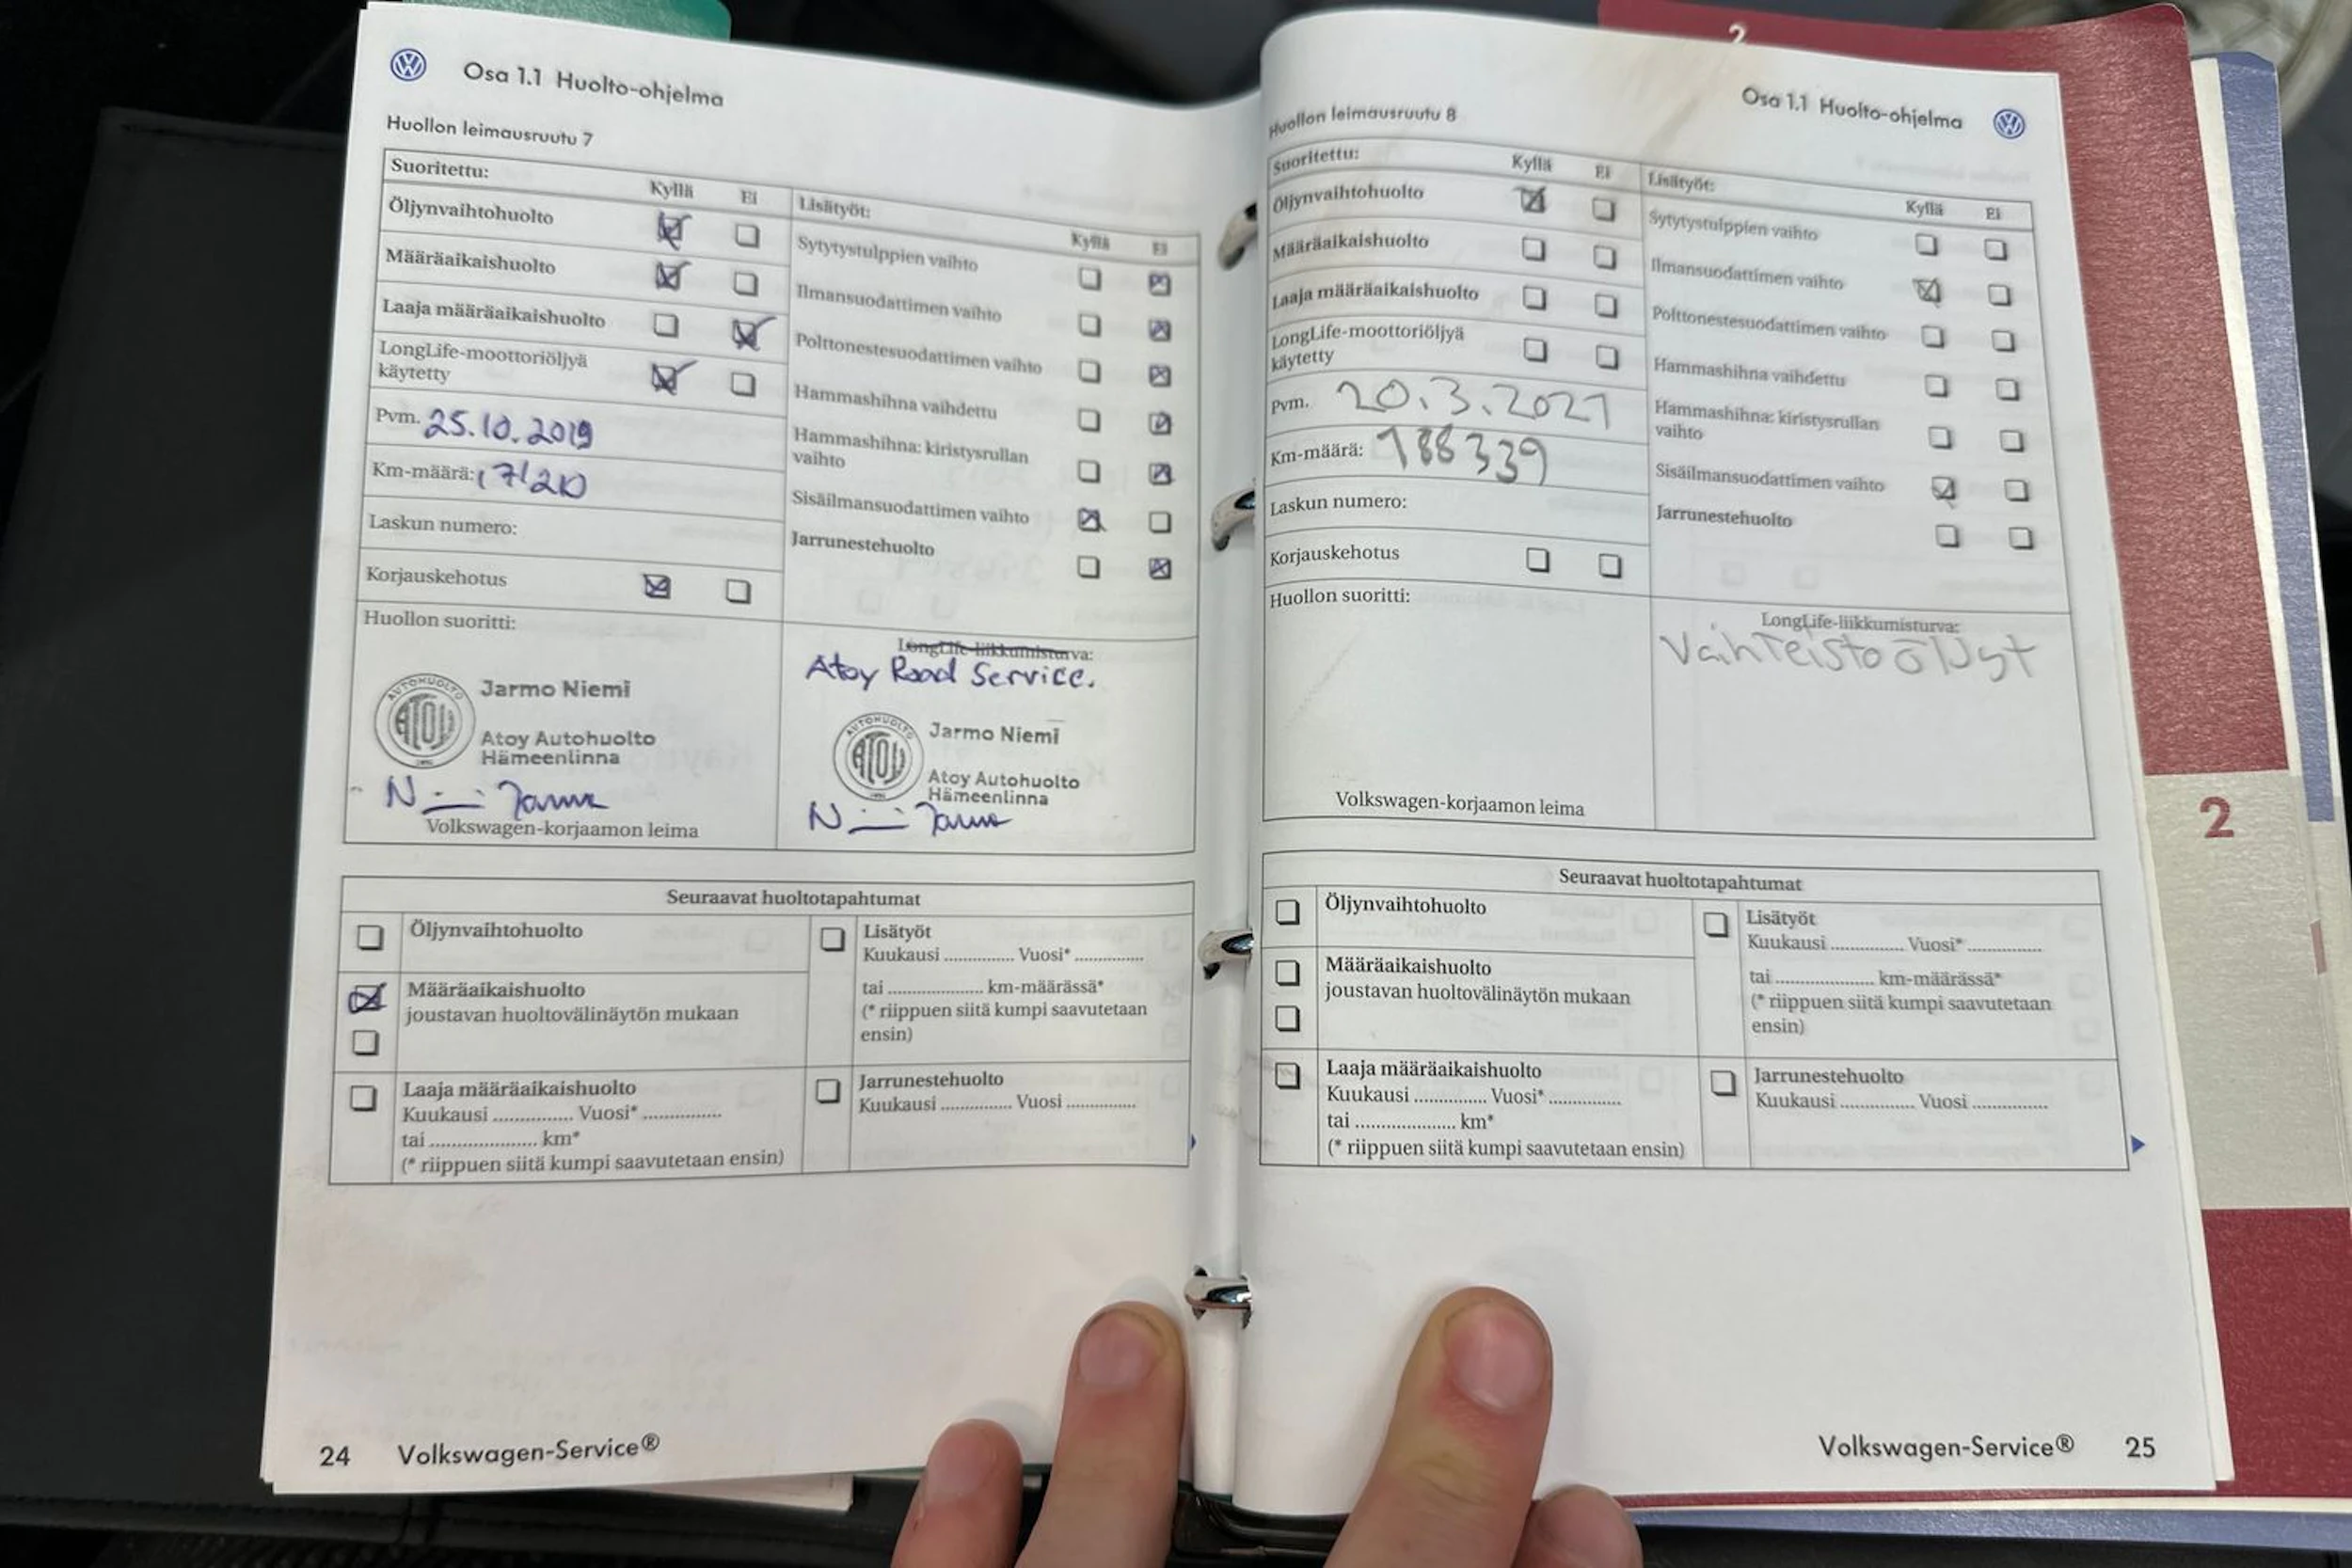 Osa 1.1 Huolto-ohjelma
Huollon leimausruutu 7
Suoritettu:
Kyllä Ei
Öljynvaihtohuolto
Määräaikaishuolto
Laaja määräaikaishuolto
LongLife-moottoriöljyä
käytetty
Pvm. 25.10.2019
Km-määrä: 171210
Laskun numero:
Korjauskehotus
Lisätyöt:
Kyllä Ei
Sytytystulppien vaihto
Ilmansuodattimen vaihto
Polttonestesuodattimen vaihto
Hammashihna vaihdettu
Hammashihna: kiristysrullan
vaihto
Sisäilmansuodattimen vaihto
Jarrunestehuolto
Huollon suoritti:
AUTOHUOLTO
ATOY
Jarmo Niemi
Atoy Autohuolto
Hämeenlinna
Volkswagen-korjaamon leima
LongLife-liikkumisturva:
Atoy Road Service.
AUTOHUOLTO
ATOY
Jarmo Niemi
Atoy Autohuolto
Hämeenlinna
Seuraavat huoltotapahtumat
Öljynvaihtohuolto
Määräaikaishuolto
joustavan huoltovälinäytön mukaan
Laaja määräaikaishuolto
Kuukausi .............. Vuosi* ..............
tai .................... km*
(* riippuen siitä kumpi saavutetaan ensin)
Lisätyöt
Kuukausi ............. Vuosi* .............
tai .................. km-määrässä*
(* riippuen siitä kumpi saavutetaan
ensin)
Jarrunestehuolto
Kuukausi ............. Vuosi .............
24 Volkswagen-Service®
2
Osa 1.1 Huolto-ohjelma
Huollon leimausruutu 8
Suoritettu:
Kyllä Ei
Öljynvaihtohuolto
Määräaikaishuolto
Laaja määräaikaishuolto
LongLife-moottoriöljyä
käytetty
Pvm. 20.3.2021
Km-määrä: 188339
Laskun numero:
Korjauskehotus
Lisätyöt:
Kyllä Ei
Sytytystulppien vaihto
Ilmansuodattimen vaihto
Polttonestesuodattimen vaihto
Hammashihna vaihdettu
Hammashihna: kiristysrullan
vaihto
Sisäilmansuodattimen vaihto
Jarrunestehuolto
Huollon suoritti:
Volkswagen-korjaamon leima
LongLife-liikkumisturva:
Vaihteistoöljyt
Seuraavat huoltotapahtumat
Öljynvaihtohuolto
Määräaikaishuolto
joustavan huoltovälinäytön mukaan
Laaja määräaikaishuolto
Kuukausi ............. Vuosi* .............
tai .................. km*
(* riippuen siitä kumpi saavutetaan ensin)
Lisätyöt
Kuukausi ............. Vuosi* .............
tai .................. km-määrässä*
(* riippuen siitä kumpi saavutetaan
ensin)
Jarrunestehuolto
Kuukausi ............. Vuosi .............
Volkswagen-Service® 25
2